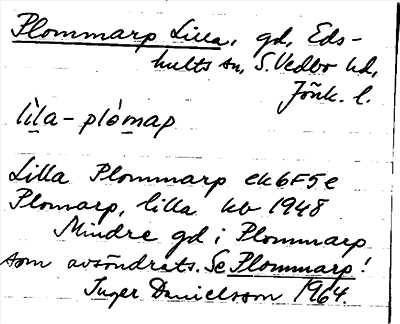 Plommarp Lilla, gd, Eds-
hults sn, S. Vedbo hd,
Jönk. l.
lìla-plómap
Lilla Plommarp ek 6F5e
Plomarp, lilla kb 1948
Mindre gd i Plommarp
som avsöndrats. Se Plommarp!
Inger Danielsson 1964.